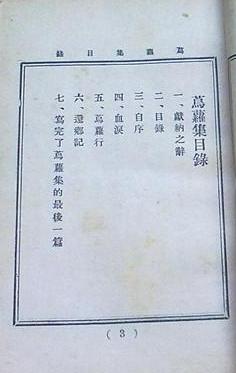 蔦蘿集目錄
蔦蘿集目錄
一、獻納之辭
二、目錄
三、自序
四、血淚
五、蔦蘿行
六、還鄉記
七、寫完了蔦蘿集的最後一篇
( 3 )